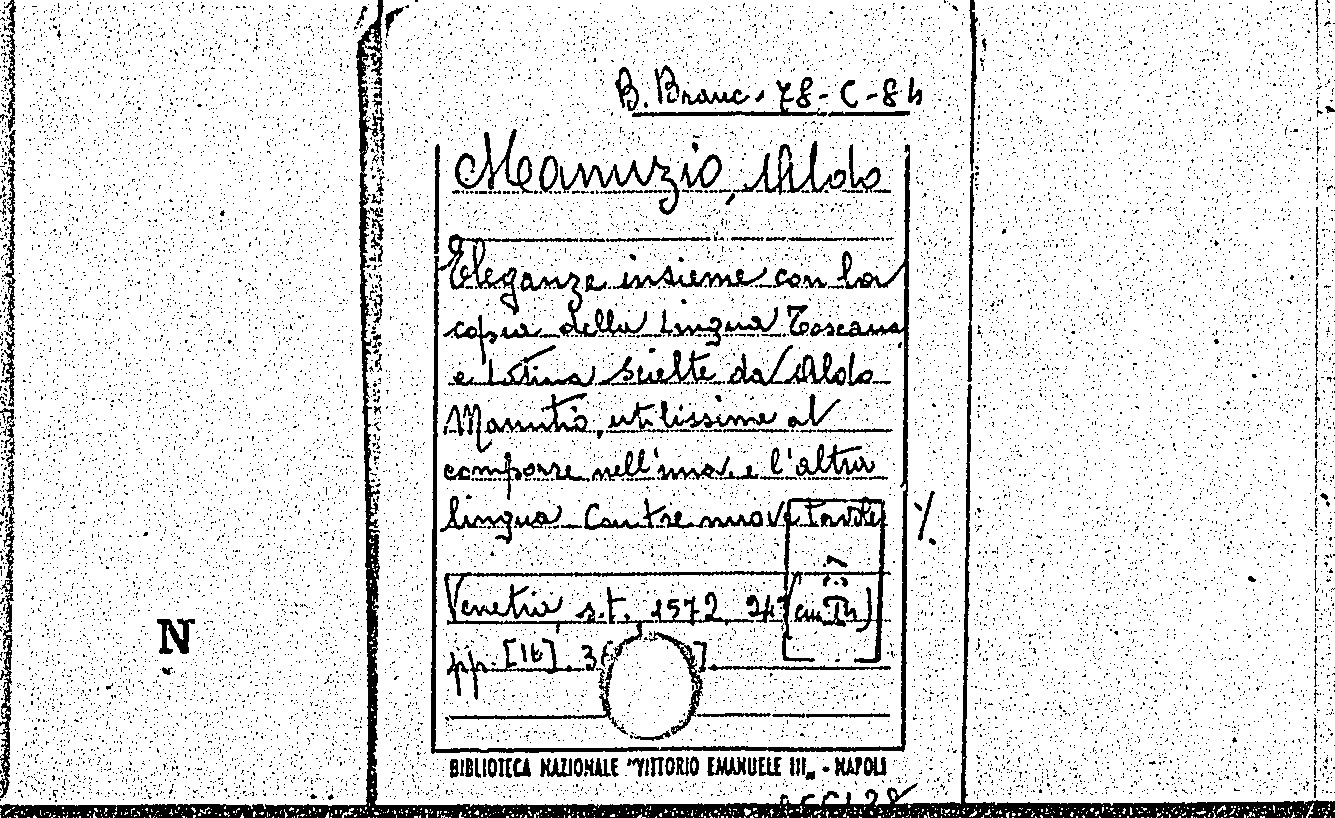 B. Branc. 78-C-84
Manuzio, Aldo
Eleganze insieme con la
copia della lingua Toscana
e latina scielte da Aldo
Manutio, utilissime al
comporre nell'una e l'altra
lingua Con tre nuove tavole
Venetia, s.t., 1572, 24º
N
pp. [16]. 3
BIBLIOTECA NAZIONALE "VITTORIO EMANUELE III„ - NAPOLI